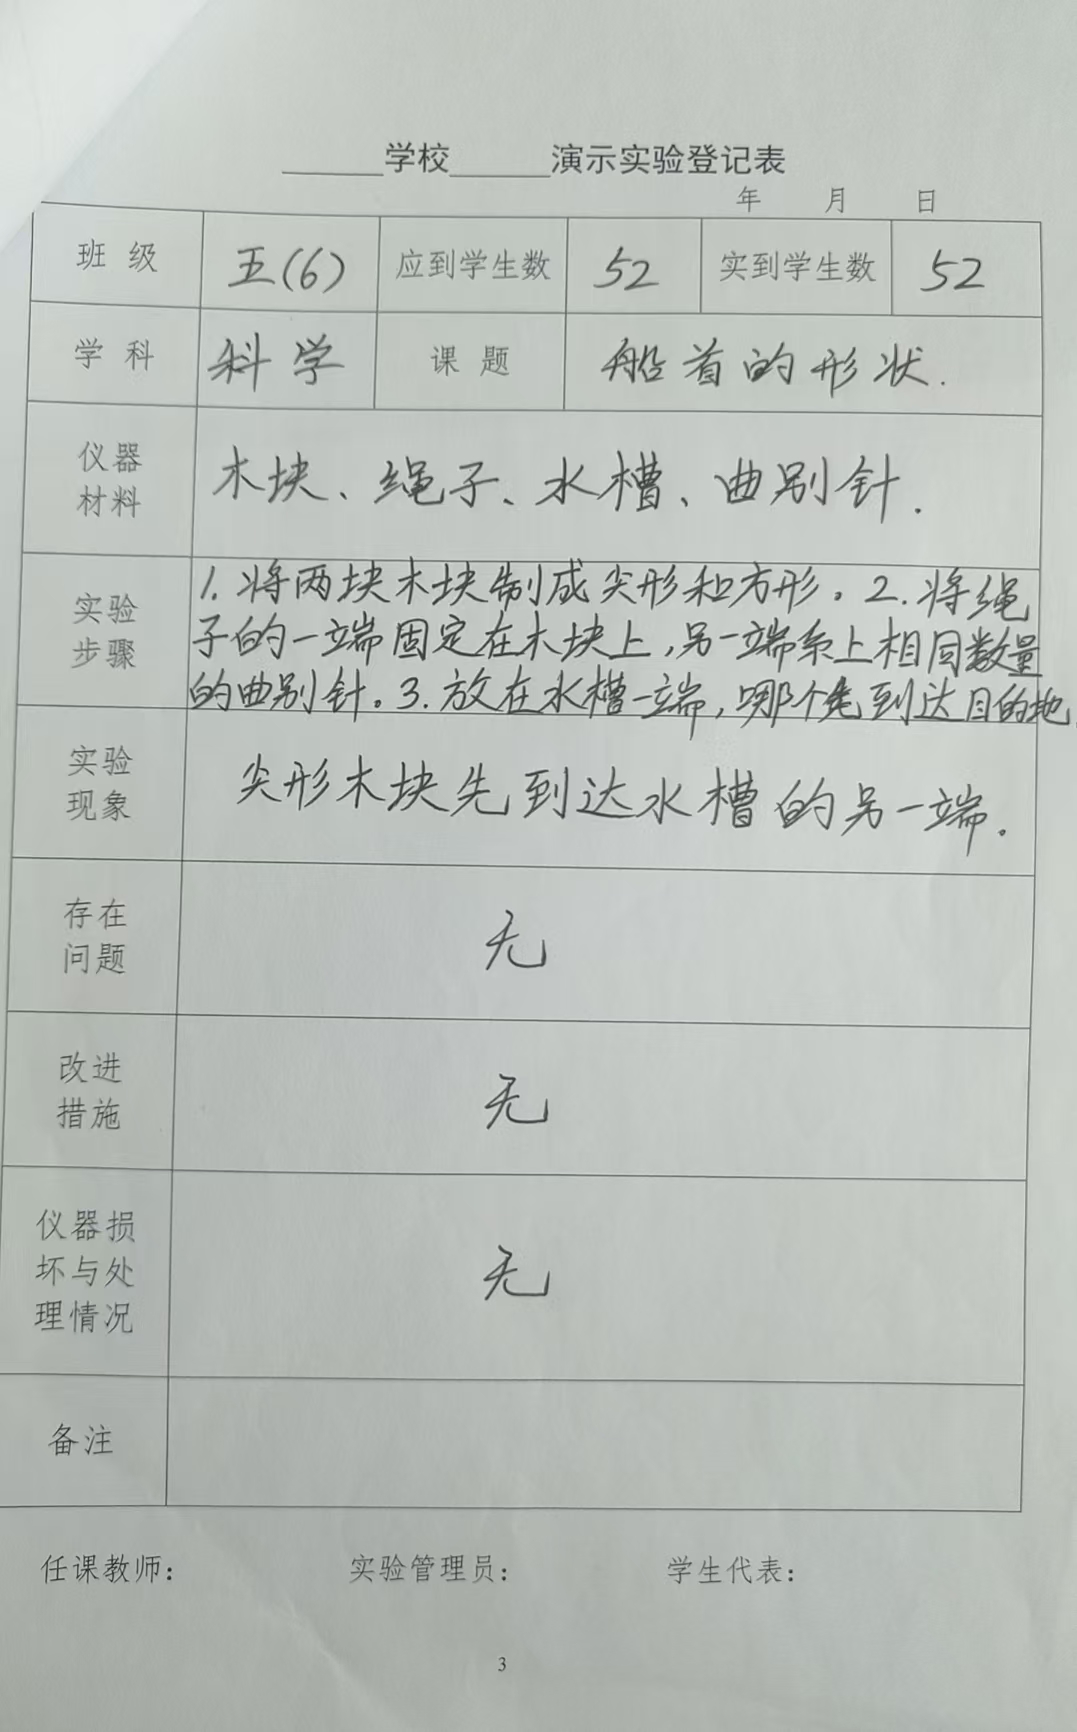 ______学校______演示实验登记表
年 月 日
班 级 五(6) 应到学生数 52 实到学生数 52
学 科 科学 课 题 船首的形状.
仪器
材料
木块、绳子、水槽、曲别针.
实验
步骤
1.将两块木块制成尖形和方形。2.将绳
子的一端固定在木块上,另一端系上相同数量
的曲别针。3.放在水槽一端,哪个先到达目的地.
实验
现象
尖形木块先到达水槽的另一端.
存在
问题
无
改进
措施
无
仪器损
坏与处
理情况
无
备注
任课教师: 实验管理员: 学生代表:
3